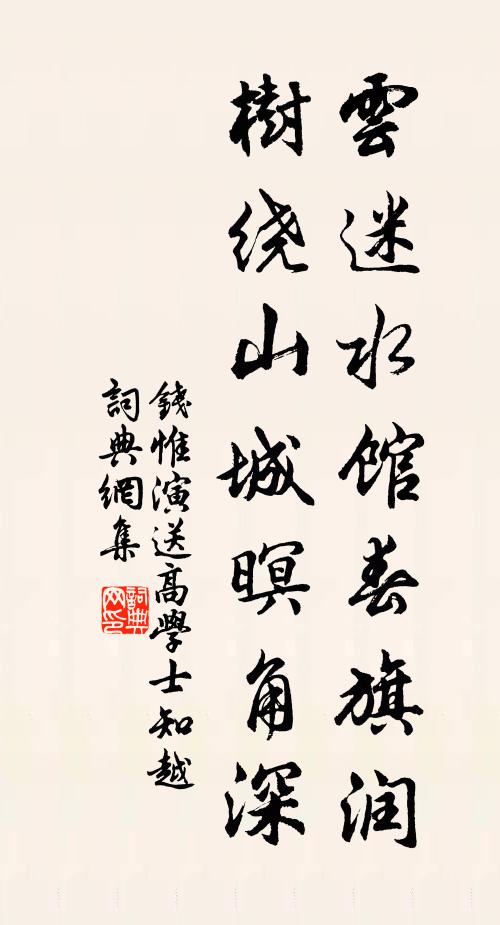 雲迷水馆春旗润
樹绕山城暝角深
錢惟演送高學士知越
詞典網集
詞典网印